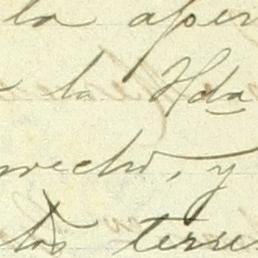 la aper
la Hda
recho, y
los terre